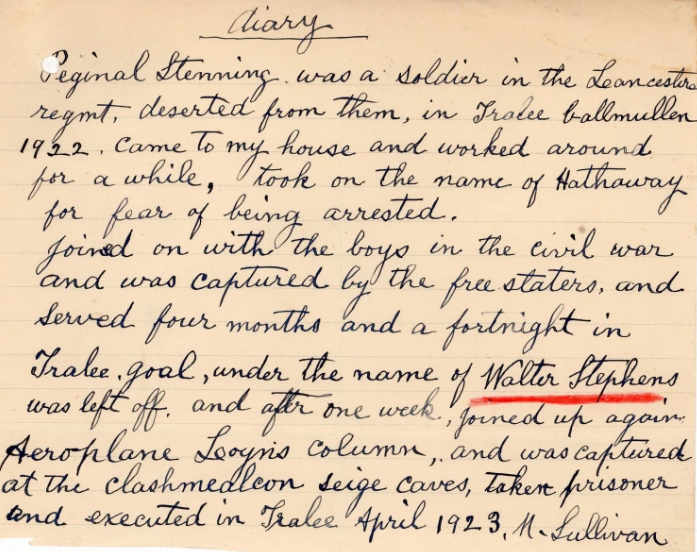 diary
Reginal Stenning was a soldier in the Leancesters
regmt, deserted from them, in Tralee ballmullen
1922. Came to my house and worked around
for a while, took on the name of Hathaway
for fear of being arrested.
joined on with the boys in the civil war
and was captured by the free staters, and
served four months and a fortnight in
Tralee. goal, under the name of Walter Stephens
was left off. and after one week, joined up again
Aeroplane Leoyns column, and was captured
at the clashmealcon seige caves, taken prisoner
and executed in Tralee April 1923, M. Sullivan